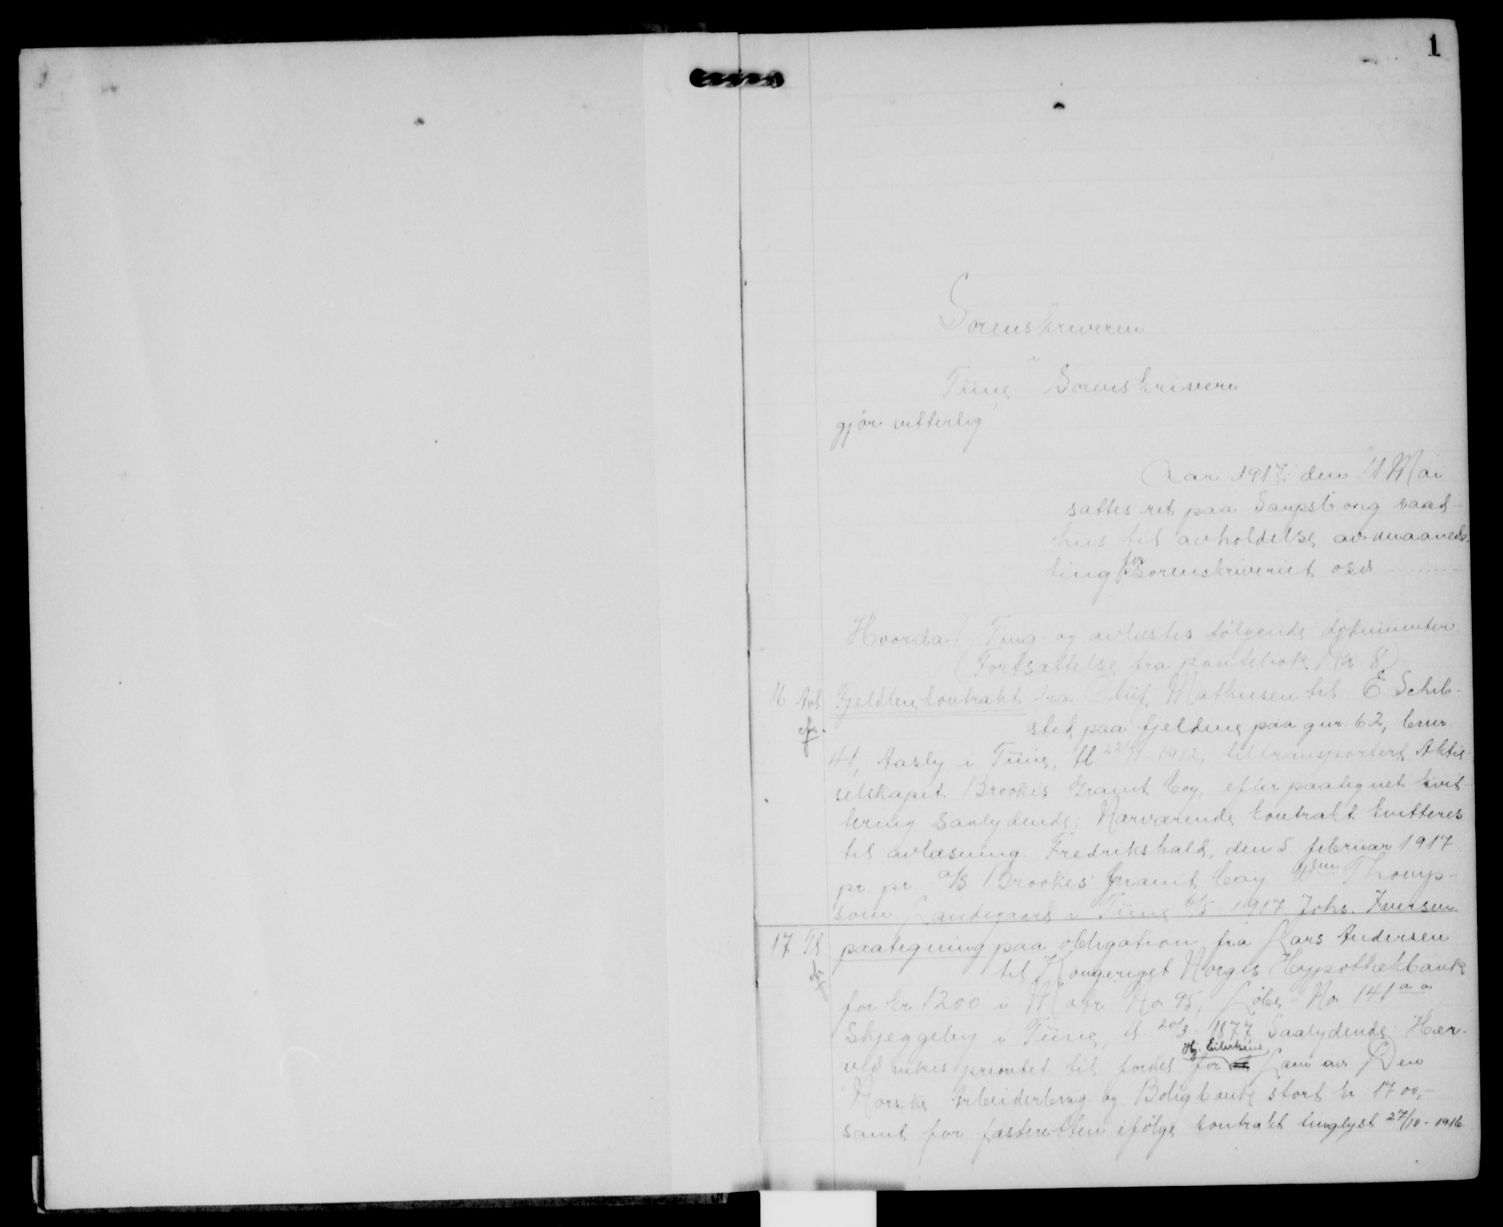 1
Sorenskriveren
i
Tune Sorenskriveri
gjør vitterlig
Aar 1917. den 11 Mai
sattes ret paa Sarpsborg raad-
hus til avholdelse av maaneds-
ting for Sorenskriveriet osv
Hvorda! Ting- og avlæstes følgende dokumenter
(Fortsættelse fra pantebok No 8)
16 Avl Fjeldleiekontrakt fra Oluf Mathiesen til E Schib-
sted paa fjeldene paa gnr. 62, bnr.
41, Aasly i Tune, tl 22/11 1912, tiltransportert Aktie-
selskapet Brookes Granit Coy, efter paategnet kvit-
tering saalydende: Nærværende kontrakt kvitteres
til avlæsning. Fredrikshald, den 5 februar 1917
pr. pr. a/s Brookes Granit Coy Thomp-
son. Landegaard i Tune 6/5 1917 Johs. Iversen
17 Tl paategning paa obligation fra Lars Andersen
til Kongeriget Norges Hypothekbank
for kr 1200 i Matr No 95, Løbe-No 141 a a
Skjeggeby i Tune, tl 20/3 1877 Saalydende: Her-
ved vikes prioritet til fordel for laan av Den
Norske Arbeiderbrug- og Boligbank stort kr 1700,-
samt for fasteretten ifølge kontrakt tinglyst 27/10-1916